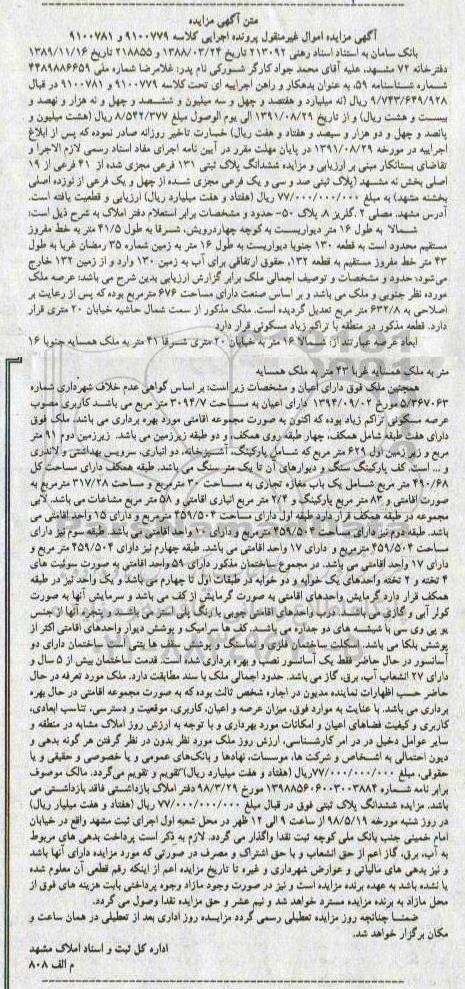 متن آگهی مزایده
آگهی مزایده اموال غیرمنقول پرونده اجرایی کلاسه ۹۱۰۰۷۷۹ و ۹۱۰۰۷۸۱
بانک سامان به استناد اسناد رهنی ۲۱۳۰۹۲ تاریخ ۱۳۸۸/۰۳/۲۴ و ۲۱۸۸۵۵ تاریخ ۱۳۸۹/۱۱/۱۶
دفترخانه ۷۲ مشهد، علیه آقای محمد جواد کارگر شورکی نام پدر: غلامرضا شماره ملی ۴۴۸۹۸۸۶۶۵۹
شماره شناسنامه ۵۹، به عنوان بدهکار و راهن اجراییه ای تحت کلاسه ۹۱۰۰۷۷۹ و ۹۱۰۰۷۸۱ در قبال
۹/۷۴۳/۶۴۹/۹۲۸ ریال (نه میلیارد و هفتصد و چهل و سه میلیون و ششصد و چهل و نه هزار و نهصد و
بیست و هشت ریال) و از تاریخ ۱۳۹۱/۰۸/۲۹ الی یوم الوصول مبلغ ۸/۵۴۲/۳۷۷ ریال (هشت میلیون و
پانصد و چهل و دو هزار و سیصد و هفتاد و هفت ریال) خسارت تاخیر روزانه صادر نموده که پس از ابلاغ
اجراییه در مورخه ۱۳۹۱/۰۸/۲۹ در پایان مهلت مقرر در آیین نامه اجرای مفاد اسناد رسمی لازم الاجرا و
تقاضای بستانکار مبنی بر ارزیابی و مزایده ششدانگ پلاک ثبتی ۱۳۱ فرعی مجزی شده از ۴۱ فرعی از ۱۹
اصلی بخش نه مشهد (پلاک ثبتی صد و سی و یک فرعی مجزی شده از چهل و یک فرعی از نوزده اصلی
بخشنه مشهد) به مبلغ ۷۷/۰۰۰/۰۰۰/۰۰۰ ریال (هفتاد و هفت میلیارد ریال) ارزیابی و قطعیت یافته است.
آدرس مشهد. مصلی ۲. گلریز ۸. پلاک ۵۰- حدود و مشخصات برابر استعلام دفتر املاک به شرح ذیل است:
شمالا به طول ۱۶ متر دیواریست به کوچه چهاردرویش، شرقا به طول ۴۱/۵ متر به خط مفروز
مستقیم محدود است به قطعه ۱۳۰ جنوبا دیواریست به طول ۱۶ متر به زمین شماره ۳۵ رمضان غربا به طول
۴۳ متر خط مفروز مستقیم به قطعه ۱۳۲، حقوق ارتفاقی برای آب به زمین ۱۳۰ وارد و از زمین ۱۳۲ خارج
می‌شود؛ حدود و مشخصات و توصیف اجمالی ملک برابر گزارش ارزیابی بدین شرح می باشد: عرصه ملک
مورده نظر جنوبی و ملک می باشد و بر اساس صنعت دارای مساحت ۶۷۶ مترمربع بوده که پس از رعایت بر
اصلاحی به ۶۳۲/۸ متر مربع تعدیل گردیده است. ملک مذکور از سمت شمال حاشیه خیابان ۲۰ متری قرار
دارد. قطعه مذکور در منطقه با تراکم زیاد مسکونی قرار دارد
ابعاد عرصه عبارتند از: شمالا ۱۶ متر به خیابان ۲۰متری شرقا ۴۱ متر به ملک همسایه جنوبا ۱۶
متر به ملک همسایه غربا ۴۳ متر به ملک همسایه
همچنین ملک فوق دارای اعیان و مشخصات زیر است: بر اساس گواهی عدم خلاف شهرداری شماره
۵/۳۶۷۰۶۳ مورخ ۱۳۹۴/۰۹/۰۲ دارای اعیان به مساحت ۳۰۹۴/۷ متر مربع می باشد کاربری مصوب
عرصه مسکونی تراکم زیاد بوده که اکنون به صورت مجموعه اقامتی مورد بهره برداری می باشد. ملک فوق
دارای هفت طبقه شامل همکف، چهار طبقه روی همکف، و دو طبقه زیرزمین می باشد. زیرزمین دوم ۹۱ متر
مربع و زیر زمین اول ۶۲۱ متر مربع که شامل پارکینگ، آشپزخانه، دو انباری، سرویس بهداشتی و لاندری
و ... است. کف پارکینگ سنگ و دیوارهای آن تا یک متر سنگ می باشد. طبقه همکف دارای مساحت کل
۴۹۰/۶۸ متر مربع شامل یک باب مغازه تجاری به مساحت ۳۰ مترمربع و مساحت ۳۱۷/۲۸ مترمربع به
صورت اقامتی و ۸۳ متر مربع پارکینگ و ۲/۴ متر مربع انباری اقامتی و ۵۸ متر مربع مشاعات می باشد. لابی
مجموعه در طبقه همکف قرار دارد طبقه اول دارای مساحت ۴۵۹/۵۰۴ مترمربع و دارای ۱۵ واحد اقامتی می
باشد. طبقه دوم نیز دارای مساحت ۴۵۹/۵۰۴ مترمربع و دارای ۱۰ واحد اقامتی می باشد. طبقه سوم نیز دارای
مساحت ۴۵۹/۵۰۴ مترمربع و دارای ۱۷ واحد اقامتی می باشد. طبقه چهارم نیز دارای ۴۵۹/۵۰۴ متر مربع و
دارای ۱۷ واحد اقامتی می باشد. در مجموع ساختمان مذکور دارای ۵۹ واحد اقامتی به صورت سوئیت های
۴ تخته و ۲ تخته واحدهای یک خوابه و دو خوابه در طبقات اول تا چهارم می باشد و یک واحد نیز در طبقه
همکف قرار دارد گرمایش واحدهای اقامتی به صورت گرمایش از کف می باشد و سرمایش آنها به صورت
کولر آبی و گازی می باشد. درب واحدهای اقامتی چوبی با رنگ پلی استر می باشد. در پنجره آنها از جنس
یو پی وی سی با شیشه های دو جداره می باشد. کف ها سرامیک و پوشش دیوار واحدهای اقامتی اکثر از
پوشش بلکا می باشد. اسکلت ساختمان فلزی و نماسنگ و پوشش سقف ها بتنی است. ساختمان دارای دو
آسانسور در حال حاضر فقط یک آسانسور نصب و بهره برداری شده است. قدمت ساختمان بیش از ۵ سال و
دارای ۲۷ انشعاب آب، برق، گاز می باشد. حدود اجمالی ملک با سند مطابقت دارد. ملک مورد تعرفه در حال
حاضر حسب اظهارات نماینده مدیون در اجاره شخص ثالث بوده که به صورت مجموعه اقامتی در حال بهره
برداری می باشد. با عنایت به موارد فوق، میزان عرصه و اعیان، کاربری، موقعیت و دسترسی، تناسب ابعادی،
کاربری و کیفیت فضاهای اعیان و امکانات مورد بهرداری و با توجه به ارزش روز املاک مشابه در منطقه و
سایر عوامل دخیل در در امر کارشناسی، ارزش روز ملک مورد نظر بدون در نظر گرفتن هر گونه بدهی و
دیون احتمالی به اشخاص و شرکت ها، موسسات، نهادها و بانک‌های عمومی و یا خصوصی و حقیقی و یا
حقوقی، مبلغ ۷۷/۰۰۰/۰۰۰/۰۰۰ریال (هفتاد و هفت میلیارد ریال) تقویم و تقویم می‌گردد. مالک موصوف
برابر نامه شماره ۱۳۹۸۸۵۶۰۶۰۰۳۰۰۳۸۸۴ مورخ ۹۸/۳/۲۹ دفتر املاک بازداشتی فاقد بازداشتی می
باشد. مزایده ششدانگ پلاک ثبتی فوق در قبال مبلغ ۷۷/۰۰۰/۰۰۰/۰۰۰ ریال (هفتاد و هفت میلیار ریال)
در روز شنبه مورخه ۹۸/۵/۱۹ از ساعت ۹ الی ۱۲ ظهر در محل شعبه اول اجرای ثبت مشهد واقع در خیابان
امام خمینی جنب بانک ملی کوچه ثبت نقدا واگذار می گردد. لازم به ذکر است پرداخت بدهی های مربوط
به آب، برق، گاز اعم از حق انشعاب و یا حق اشتراک و مصرف در صورتی که مورد مزایده دارای آنها باشد
و نیز بدهی های مالیاتی و عوارض شهرداری و غیره تا تاریخ مزایده اعم از اینکه رقم قطعی آن معلوم شده
یا نشده باشد به عهده برنده مزایده است و نیز در صورت وجود مازاد وجوه پرداختی بابت هزینه های فوق از
محل مازاد به برنده مزایده مسترد خواهد شد و نیم عشر و حق مزایده نقدا وصول می گردد.
ضمنا چنانچه روز مزایده تعطیلی رسمی گردد مزایسده روز اداری بعد از تعطیلی در همان ساعت و
مکان برگزار خواهد شد.
اداره کل ثبت و اسناد املاک مشهد
م الف ۸۰۸